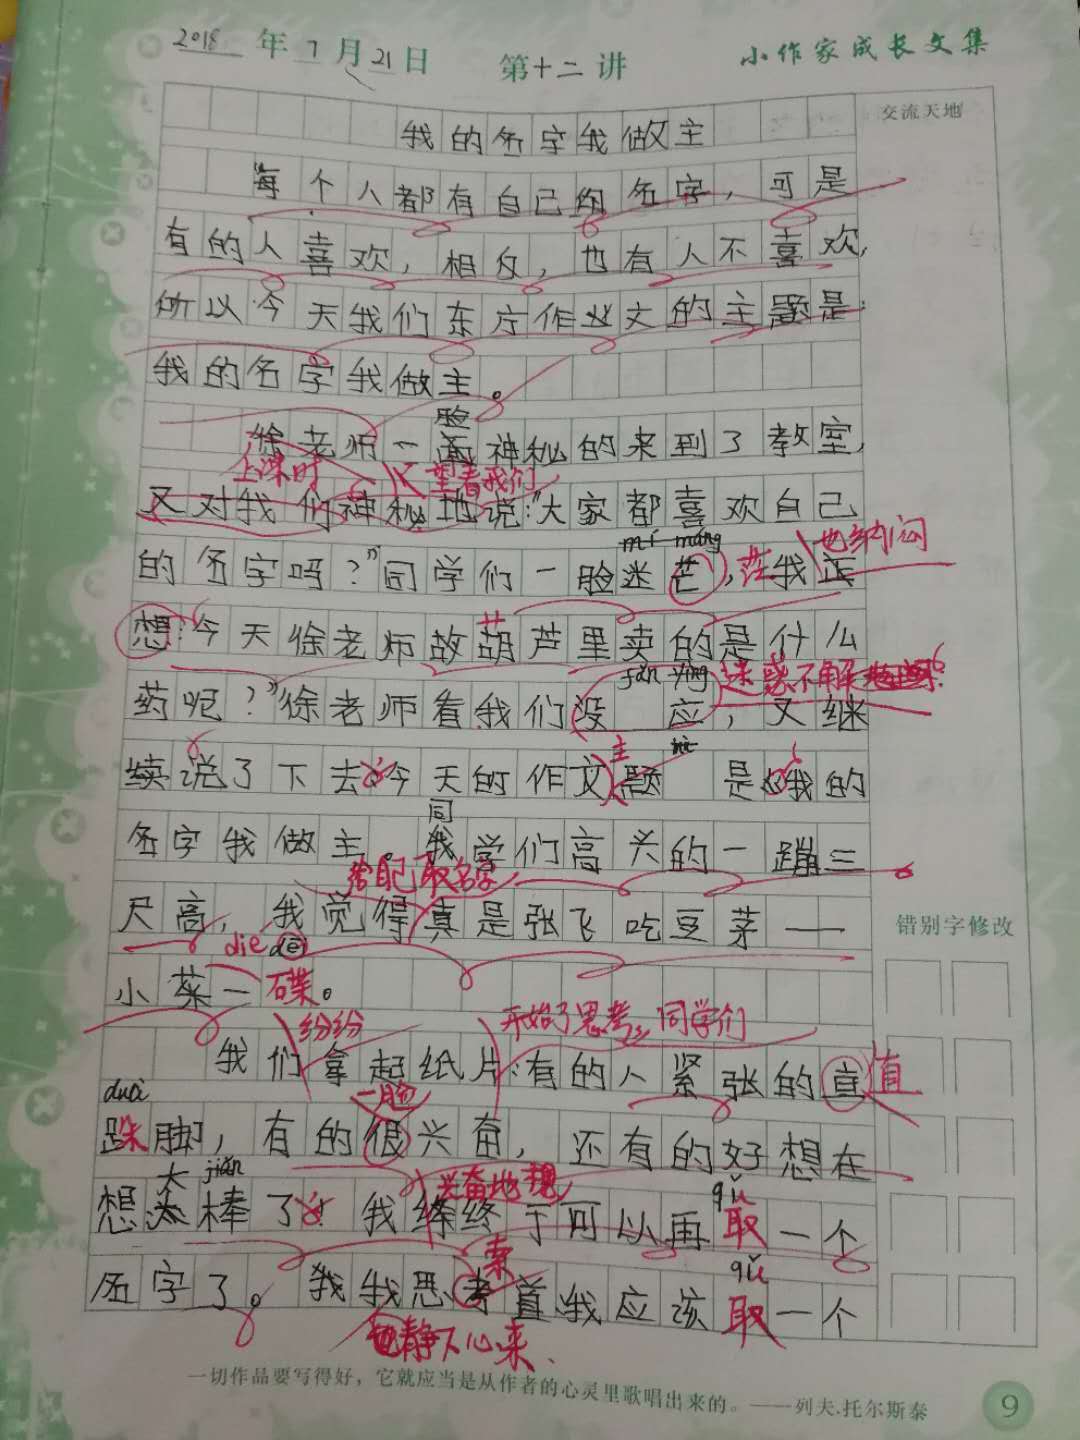 2018年7月21日 第十二讲 小作家成长文集
交流天地
我的名字我做主
每个人都有自己的名字，可是
有的人喜欢，相反，也有人不喜欢，
所以今天我们东方作业文的主题是：
我的名字我做主。
脸
徐老师一画神秘的来到了教室，
上课时 又望着我们
又对我们神秘地说:"大家都喜欢自己
mí máng 也纳闷
的名字吗？"同学们一脸迷芒，茫我正
艹
想:今天徐老师故葫芦里卖的是什么
fǎn yìng 迷惑不解
药呢？"徐老师看我们没 应，又继
主
续说了下去:今天的作文题 是:我的
同
名字我做主。我学们高兴的一蹦三
给自己取名字
尺高，我觉得真是张飞吃豆芽——
die dié 错别字修改
小菜一碟。
纷纷 开始了思考，同学们
我们拿起纸片:有的人紧张的直值
duò 一脸
跺脚，有的很兴奋，还有的好想在
大 jiǎn 兴奋地想 qǔ
想太棒了，我终终于可以再取一个
索 qǔ
名字了。我我思考着:我应该取一个
也静下心来、
一切作品要写得好，它就应当是从作者的心灵里歌唱出来的。——列夫.托尔斯泰
9